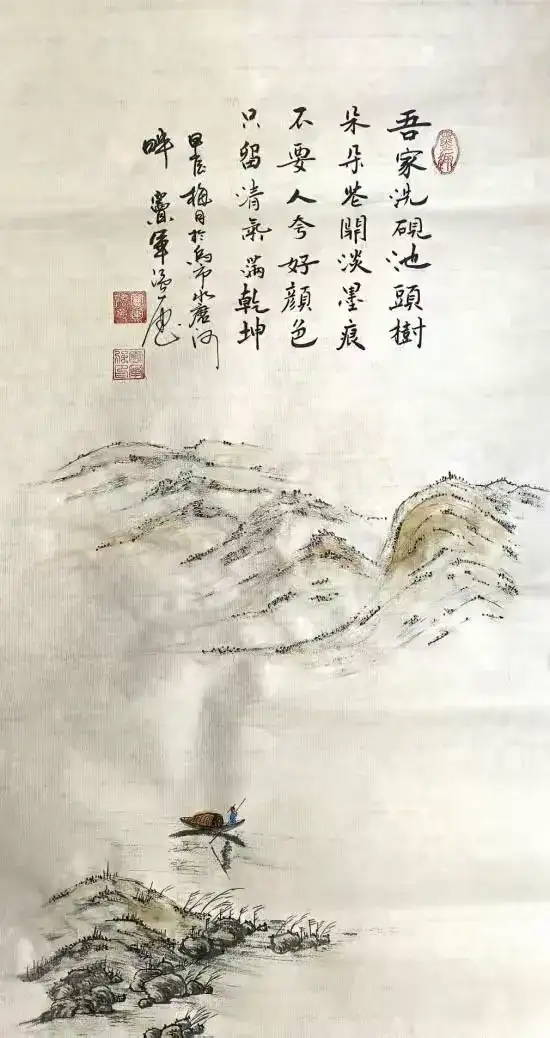 吾家洗硯池頭樹
朵朵花開淡墨痕
不要人夸好顏色
只留清氣滿乾坤
甲辰梅月於烏市水磨河
畔 軍